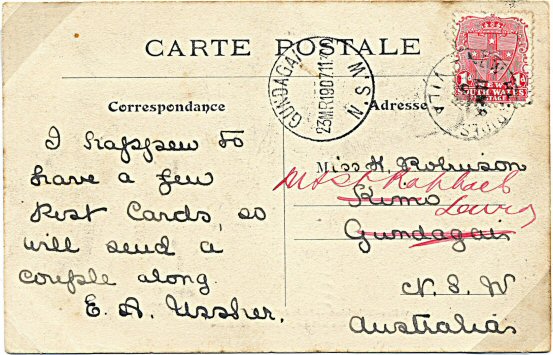 CARTE POSTALE
NEW
SOUTH WALES
POSTAGE
GUNDAGAI
23MR1907
N.S.W
Correspondance
Adresse
I happen to
have a few
Post Cards, so
will send a
couple along.
E. A. Ussher.
Miss H. Robinson
Mt St Raphael
Kimo
Gundagai
N. S. W
Australia